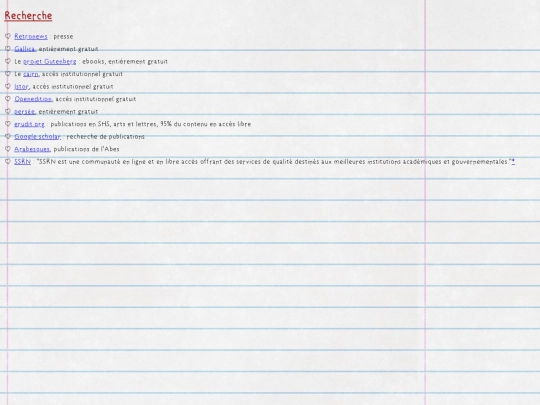 Recherche
Retronews : presse
Gallica, entièrement gratuit
Le projet Gutenberg : ebooks, entièrement gratuit
Le cairn, accès institutionnel gratuit
Jstor, accès institutionnel gratuit
Openedition, accès institutionnel gratuit
persée, entièrement gratuit
erudit.org : publications en SHS, arts et lettres, 95% du contenu en accès libre
Google scholar : recherche de publications
Arabesques, publications de l'Abes
SSRN : "SSRN est une communauté en ligne et en libre accès offrant des services de qualité destinés aux meilleures institutions académiques et gouvernementales."*